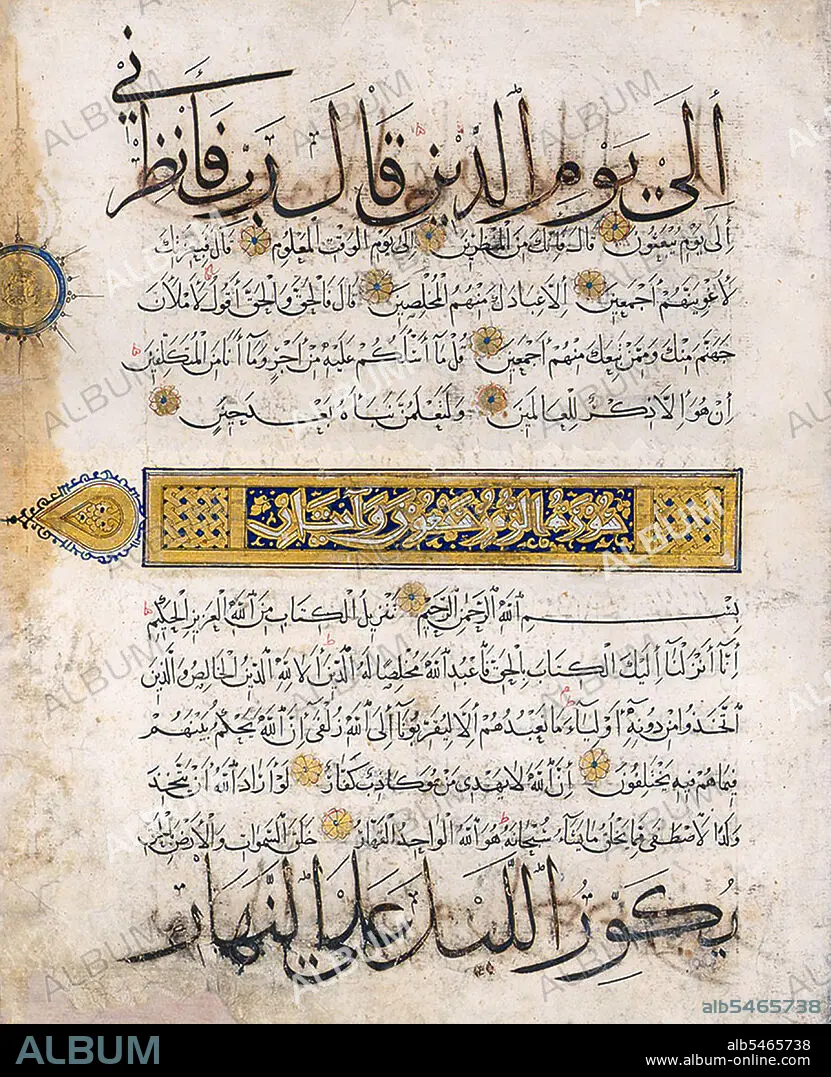 إلى يوم الدين قال رب فأنظرني
إلى يوم يبعثون قال فإنك من المنظرين إلى يوم الوقت المعلوم قال فبعزتك
لأغوينهم أجمعين إلا عبادك منهم المخلصين قال فالحق والحق أقول لأملأن
جهنم منك وممن تبعك منهم أجمعين قل ما أسألكم عليه من أجر وما أنا من المتكلفين
إن هو إلا ذكر للعالمين ولتعلمن نبأه بعد حين
سورة الزمر سبعون وآيتان
بسم الله الرحمن الرحيم تنزيل الكتاب من الله العزيز الحكيم
إنا أنزلنا إليك الكتاب بالحق فاعبد الله مخلصا له الدين ألا لله الدين الخالص والذين
اتخذوا من دونه أولياء ما نعبدهم إلا ليقربونا إلى الله زلفى إن الله يحكم بينهم
فيما هم فيه يختلفون إن الله لا يهدي من هو كاذب كفار لو أراد الله أن يتخذ
ولدا لاصطفى مما يخلق ما يشاء سبحانه هو الله الواحد القهار خلق السموات والأرض بالحق
يكور الليل على النهار
alb5465738
ALBUM
alb5465738
www.album-online.com